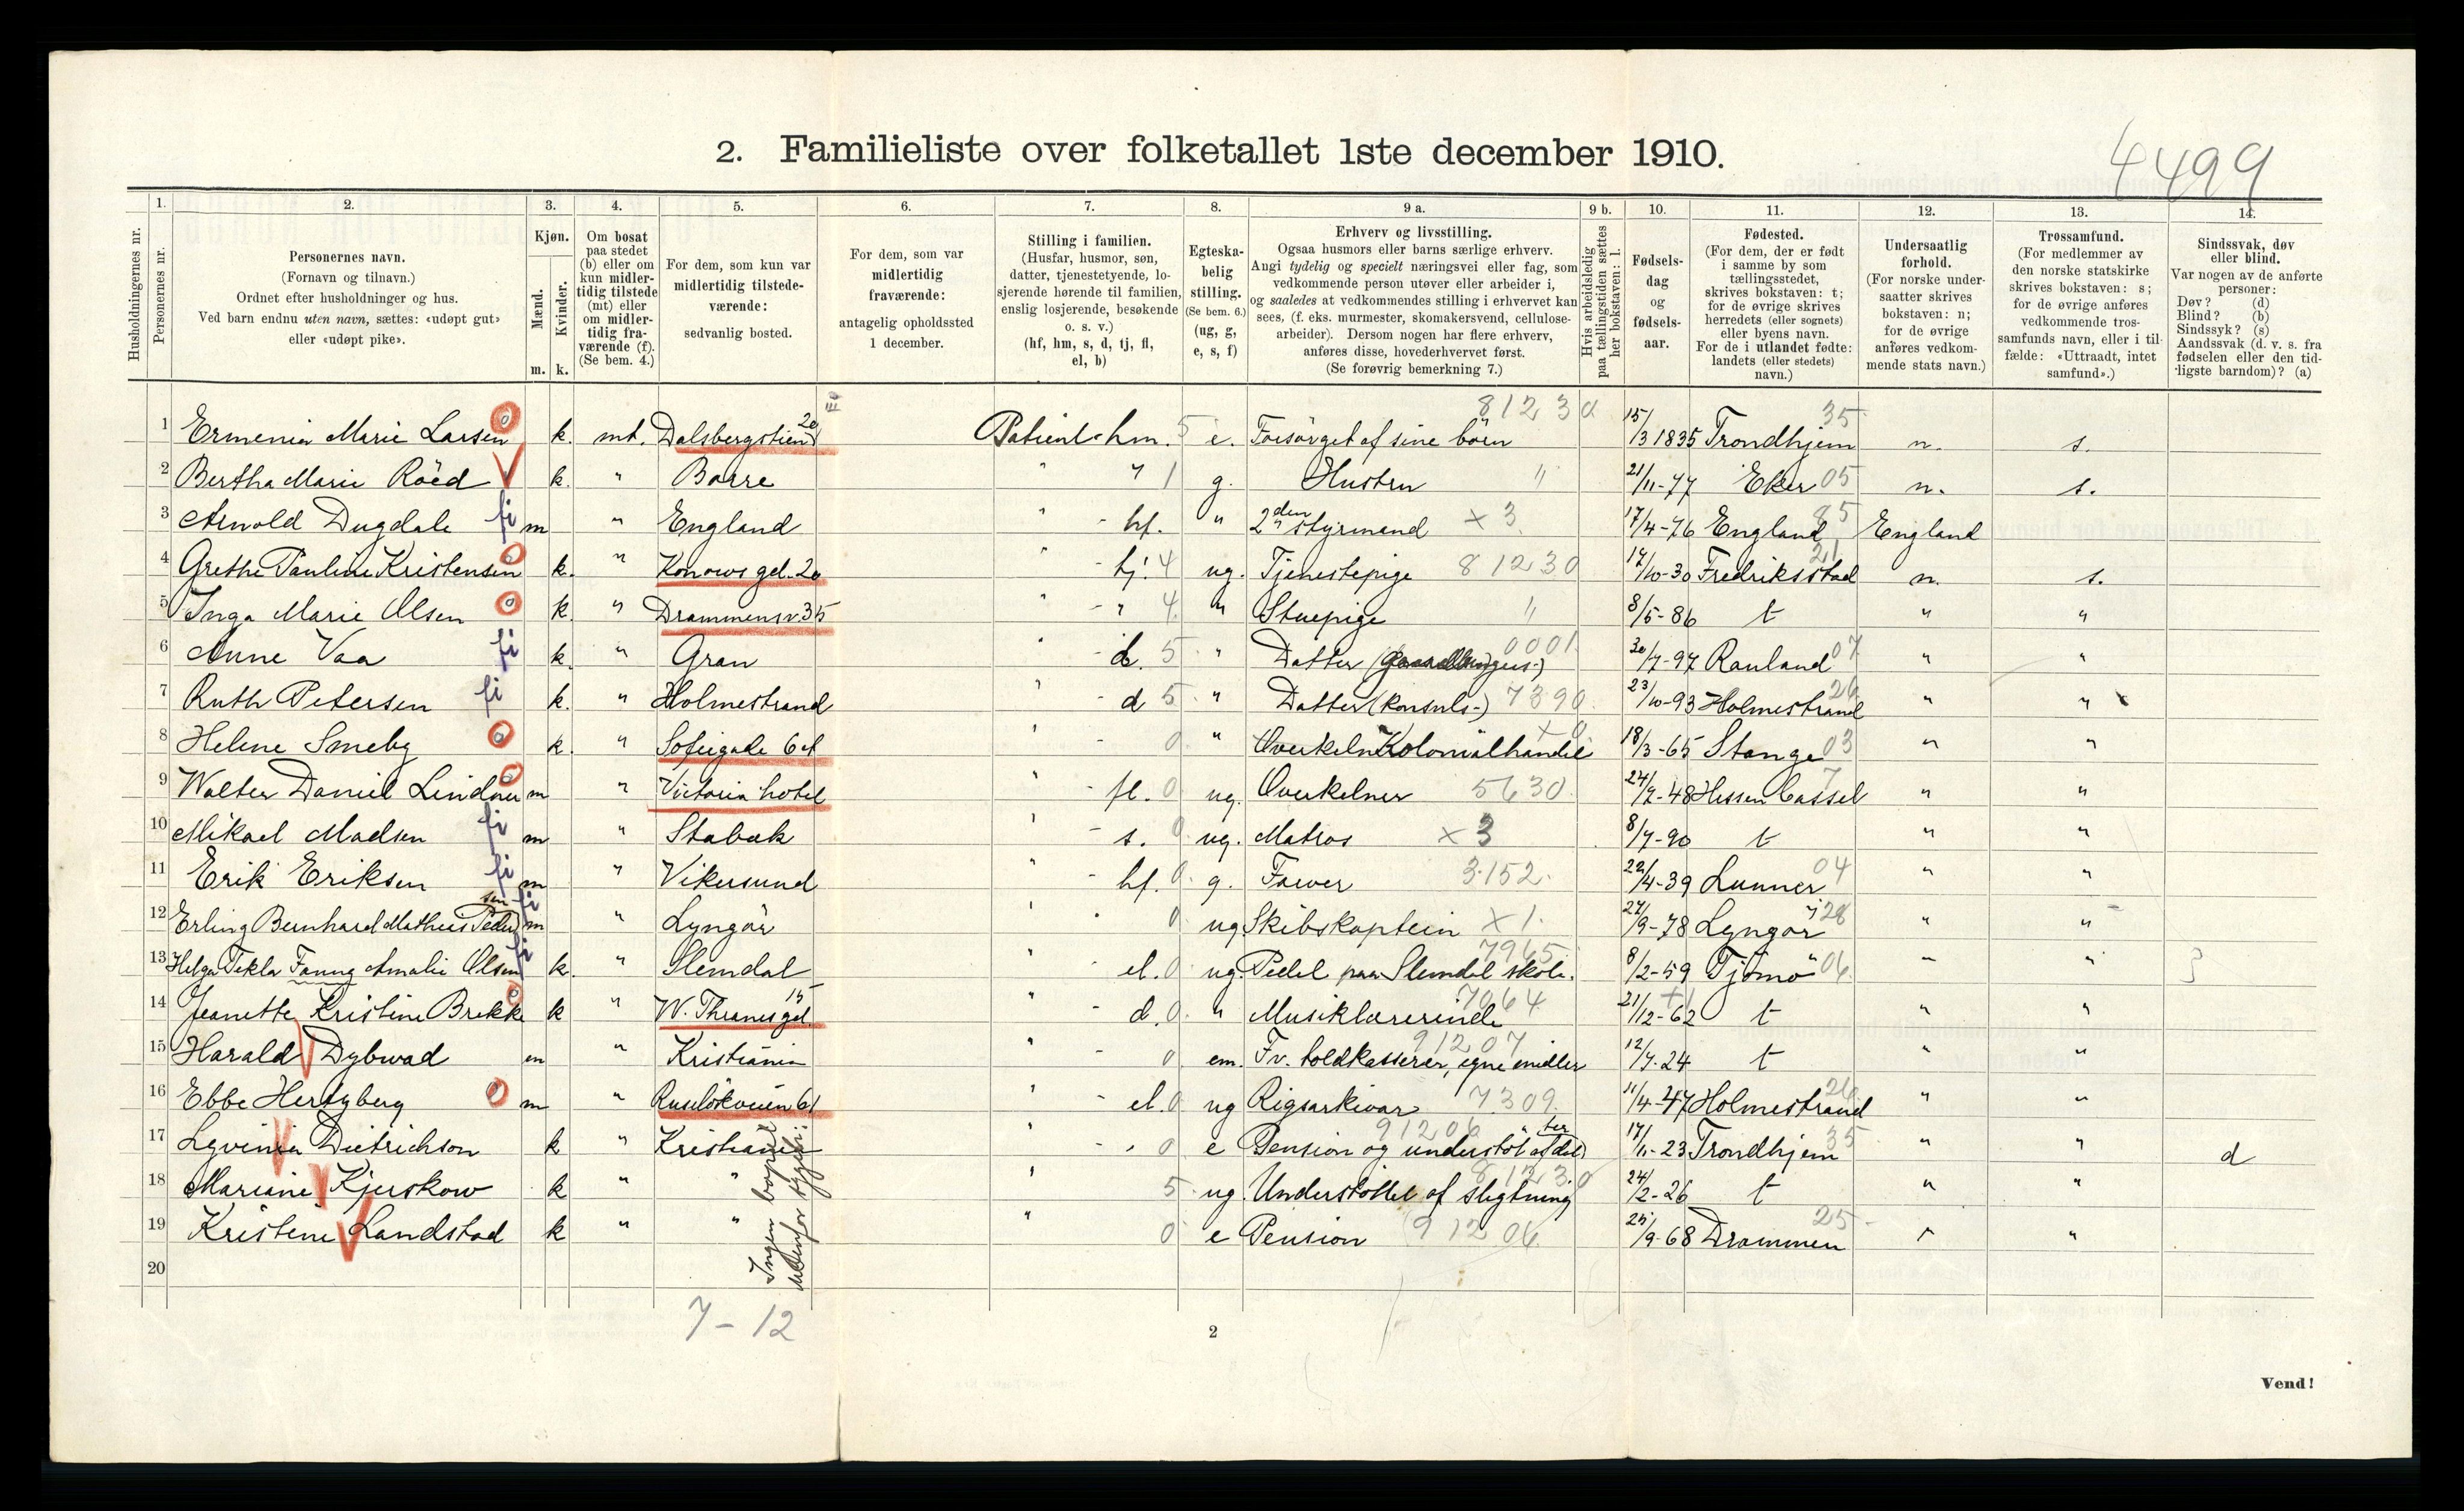 4499
2. Familieliste over folketallet 1ste december 1910.
1. 2. 3. 4. 5. 6. 7. 8. 9 a. 9 b. 10. 11. 12. 13. 14.
Husholdningernes nr.
Personernes nr.
Personernes navn.
(Fornavn og tilnavn.)
Ordnet efter husholdninger og hus.
Ved barn endnu uten navn, sættes: «udøpt gut»
eller «udøpt pike».
Kjøn.
Mænd.
Kvinder.
m. k.
Om bosat
paa stedet
(b) eller om
kun midler-
tidig tilstede
(mt) eller
om midler-
tidig fra-
værende (f).
(Se bem. 4.)
For dem, som kun var
midlertidig tilstede-
værende:
sedvanlig bosted.
For dem, som var
midlertidig
fraværende:
antagelig opholdssted
1 december.
Stilling i familien.
(Husfar, husmor, søn,
datter, tjenestetyende, lo-
sjerende hørende til familien,
enslig losjerende, besøkende
o. s. v.)
(hf, hm, s, d, tj, fl,
el, b)
Egteska-
belig
stilling.
(Se bem. 6.)
(ug, g,
e, s, f)
Erhverv og livsstilling.
Ogsaa husmors eller barns særlige erhverv.
Angi tydelig og specielt næringsvei eller fag, som
vedkommende person utøver eller arbeider i,
og saaledes at vedkommendes stilling i erhvervet kan
sees, (f. eks. murmester, skomakersvend, cellulose-
arbeider). Dersom nogen har flere erhverv,
anføres disse, hovederhvervet først.
(Se forøvrig bemerkning 7.)
Hvis arbeidsledig
paa tællingstiden sættes
her bokstaven: l.
Fødsels-
dag
og
fødsels-
aar.
Fødested.
(For dem, der er født
i samme by som
tællingsstedet,
skrives bokstaven: t;
for de øvrige skrives
herredets (eller sognets)
eller byens navn.
For de i utlandet fødte:
landets (eller stedets)
navn.)
Undersaatlig
forhold.
(For norske under-
saatter skrives
bokstaven: n;
for de øvrige
anføres vedkom-
mende stats navn.)
Trossamfund.
(For medlemmer av
den norske statskirke
skrives bokstaven: s;
for de øvrige anføres
vedkommende tros-
samfunds navn, eller i til-
fælde: «Uttraadt, intet
samfund».)
Sindssvak, døv
eller blind.
Var nogen av de anførte
personer:
Døv? (d)
Blind? (b)
Sindssyk? (s)
Aandssvak (d. v. s. fra
fødselen eller den tid-
ligste barndom)? (a)
1 Ermenia Marie Larsen k. mt. Dalsbergstien 20 III Patient - hm. 5 e. Forsørget af sine børn 81230 15/3 1835 Trondhjem 35 n. s.
2 Bertha Marie Röed k. " Borre " " 1 g. Hustru " 21/11-77 Eker 05 n. s.
3 Arnold Dugdale fi m " England " - hf. " 2den styrmand x 3. 17/4-76 England 85 England
4 Grethe Pauline Kristensen k. " Konows gd. 20 " - tj. 4 ug. Tjenestepige 81230 14/10-30 Fredriksstad 21 n. s.
5 Inga Marie Olsen k. " Drammensv. 35 " - " 4. " Stuepige " 8/5-86 t " "
6 Anne Vaa fi k. " Gran " - d. 5 " Datter 0001 20/7-97 Rauland 07 " "
7 Ruth Petersen fi k. " Holmestrand " - d 5 " Datter (konsuls-) 7390 23/10-93 Holmestrand 26 " "
8 Helene Smeby k. " Sofiegade 6 " - 0 " Kolonialhandel x 0 18/3-65 Stange 03 " "
9 Walter Daniel Lindner m " Victoria hotel " - fl. 0 ug. Overkelner 5630. 24/7-48 Hessen Cassel 7 " "
10 Mikael Madsen fi m " Stabæk " - s. 0 ug. Matros x 3 8/7-90 t " "
11 Erik Eriksen fi m " Vikersund " - hf. 0. g. Farver 3.152. 22/4-39 Lunner 04 " "
12 Erling Bernhard Mathias Pedersen fi m " Lyngör " - 0 ug Skibskaptein x 1. 27/9-78 Lyngör 28 " "
13 Helga Tekla Fanny Amalie Olsen fi k. " Slemdal " - el. 0 ug. Pedel paa Slemdal skole. 7965 8/2-59 Tjömö 06 " "
14 Jeanette Kristine Brekke k " W. Thranes gd. 15 " - d. 0. " Musiklærerinde 7064 21/12-62 t " "
15 Harald Dybwad m " Kristiania " - 0 em. Fv. toldkasserer, egne midler 91207 12/7-24 t " "
16 Ebbe Hertzberg m " Ruselökveien 61 " - el. 0 ug Rigsarkivar 7309 11/4-47 Holmestrand 26 " "
17 Lyvinia Dietrichson k " Kristiania " - " 0 e Pension og understöt af 91206 17/11-23 Trondhjem 35 " " d
18 Mariane Kjerskow k " " " 5 ug. Understöttet af slegtning 81230 24/2-26 t " "
19 Kristine Landstad k " " " 0 e Pension 91206 25/9-68 Drammen 25 " "
20
Ingen bopæl
udenfor
7-12
2
Vend!